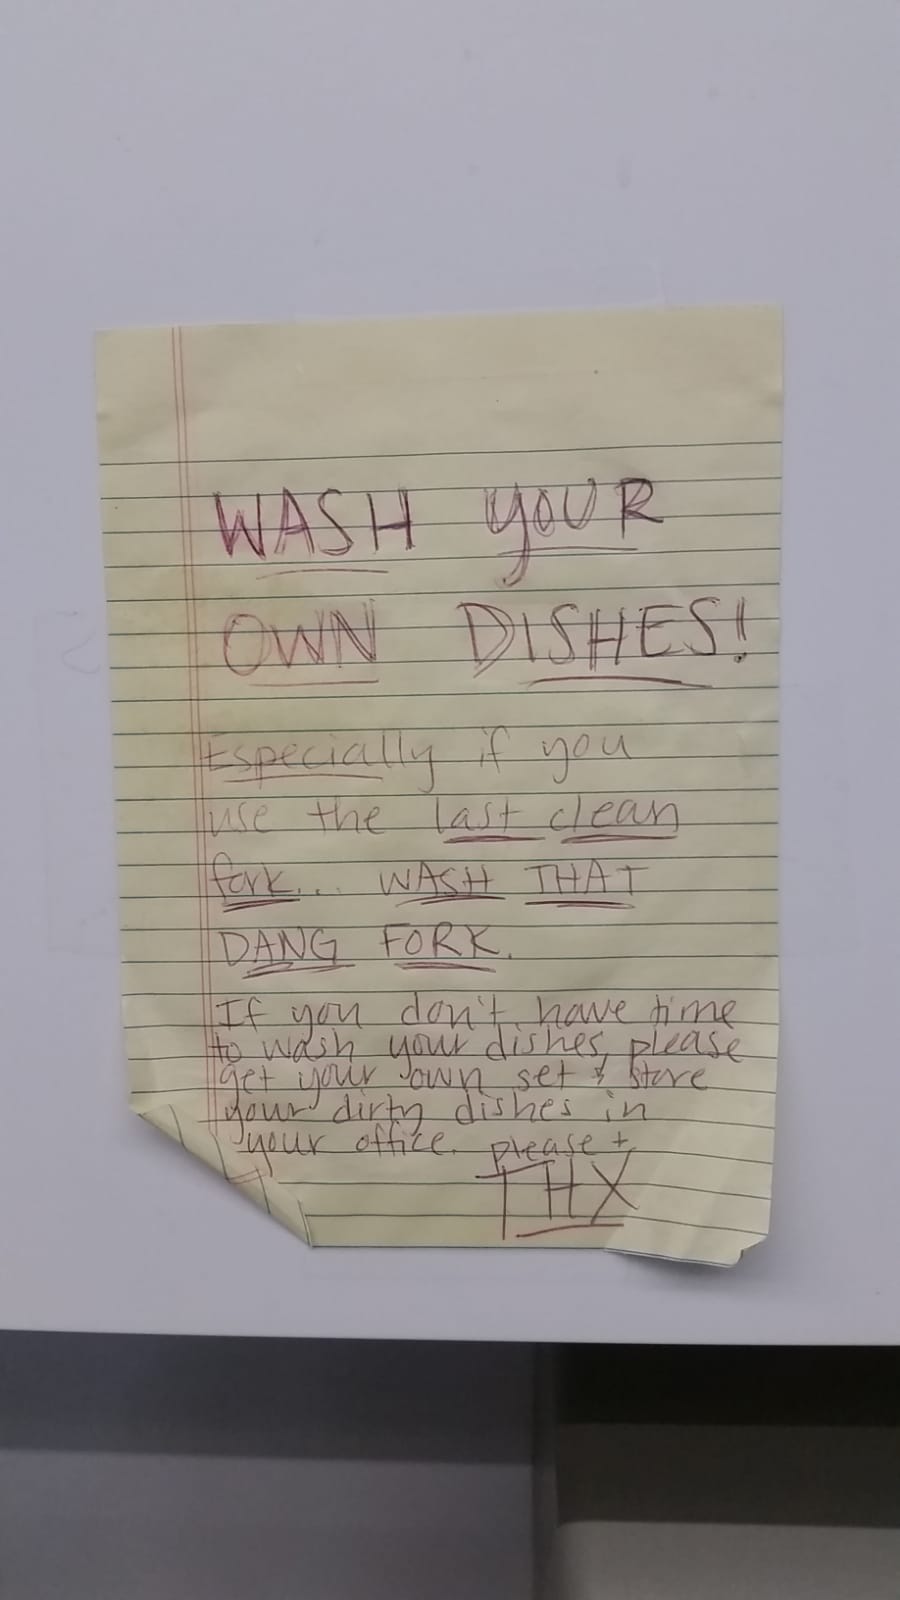 WASH YOUR
OWN DISHES!
Especially if you
use the last clean
fork... WASH THAT
DANG FORK.
If you don't have time
to wash your dishes, please
get your own set & store
your dirty dishes in
your office. please +
THX